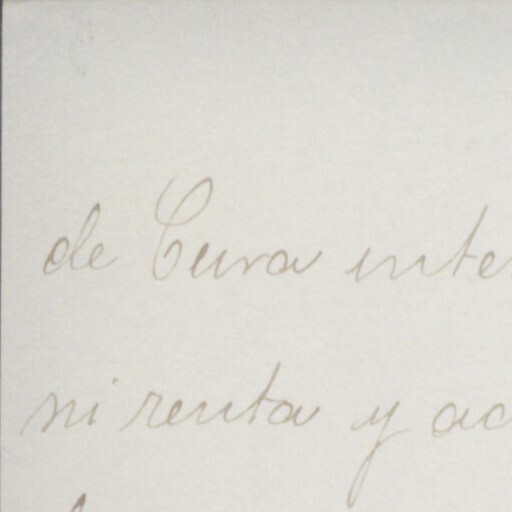 de Cura inte
ni renta y ac